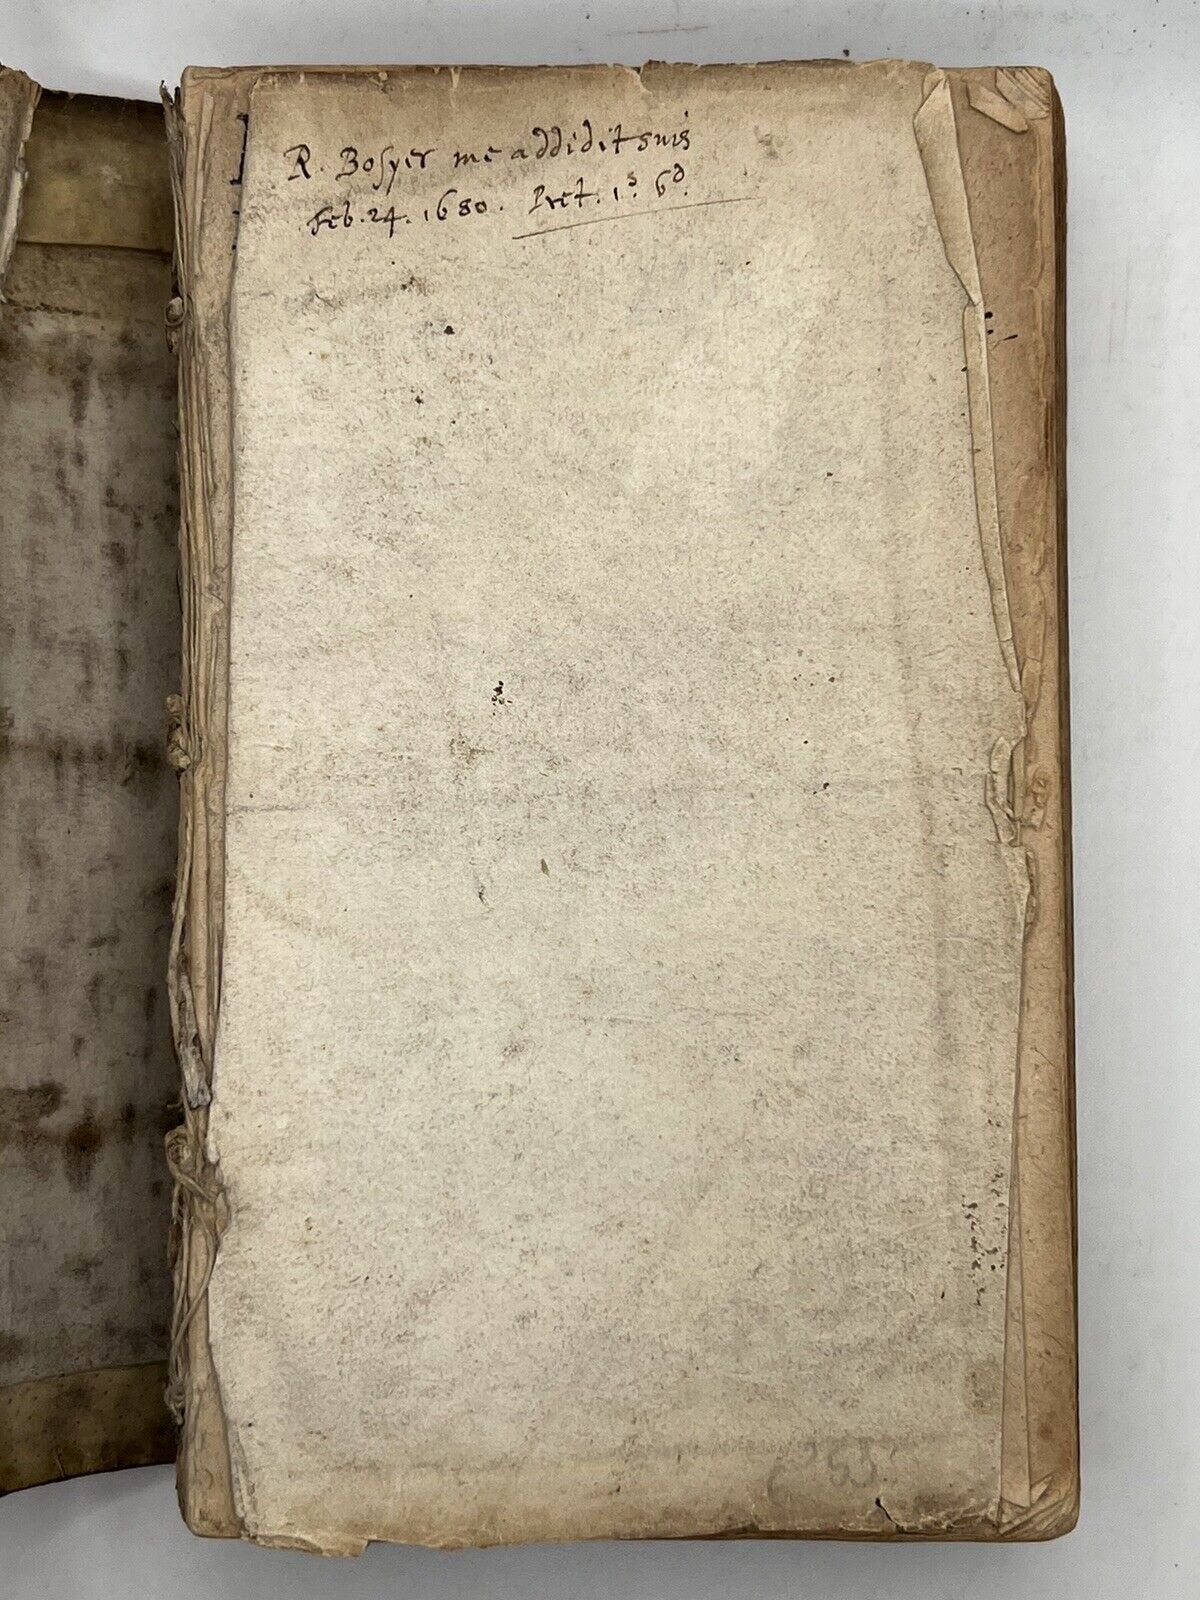 R. Bosyer me addidit suis
Feb. 24. 1680. Pret. 1s. 6d.